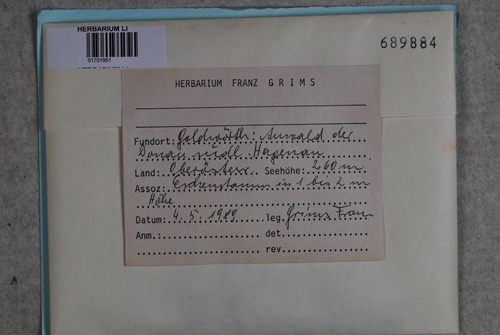 HERBARIUM LI
01701951
689884
HERBARIUM FRANZ GRIMS
Fundort: Goldwörth: Auwald der
Donau südl. Hagenau
Land: Oberösterr. Seehöhe: 260 m
Assoz: Eschenstamm in 1 bis 2 m
Höhe
Datum: 4.5.1989 leg. Grims Franz
Anm.: det.
rev.